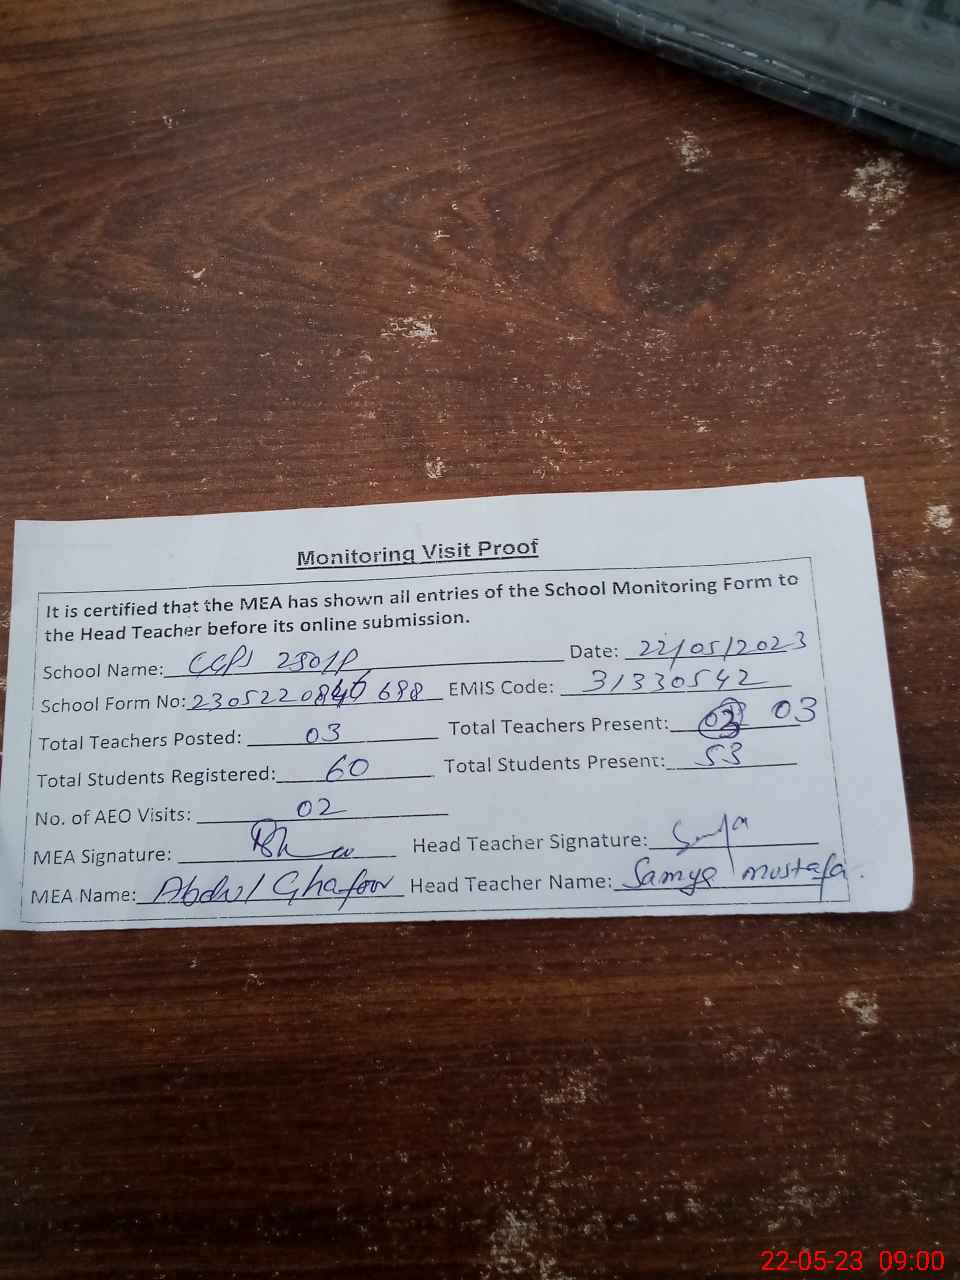 Monitoring Visit Proof
It is certified that the MEA has shown all entries of the School Monitoring Form to
the Head Teacher before its online submission.
School Name: 280/P Date: 22/05/2023
School Form No: EMIS Code: 31330542
Total Teachers Posted: 03 Total Teachers Present: 03
Total Students Registered: 60 Total Students Present: 53
No. of AEO Visits: 02
MEA Signature: Head Teacher Signature:
MEA Name: Abdul Ghafoor Head Teacher Name: Samya mustafa.
22-05-23 09:00